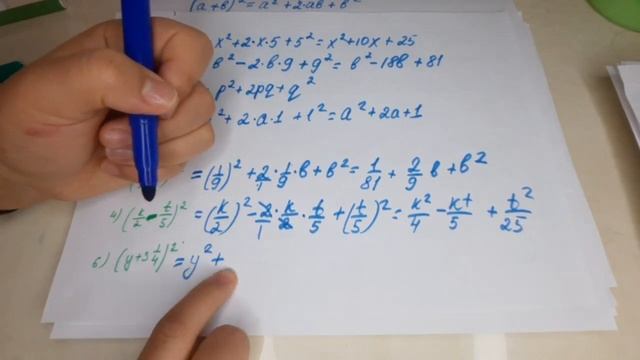 (a+b)² = a² + 2·ab + b²
x²+2·x·5+5²= x²+10x+25
b²-2·b·9+9²= b²-18b+81
p²+2pq+q²
²+2·a·1+1²= a²+2a+1
=(1/9)²+2/1·1/9·b+b²= 1/81 + 2/9 b+b²
4) (k/2 - t/5)² = (k/2)² - 2/1·k/2·t/5 + (t/5)² = k²/4 - kt/5 + t²/25
6) (y+3 1/4)² = y²+